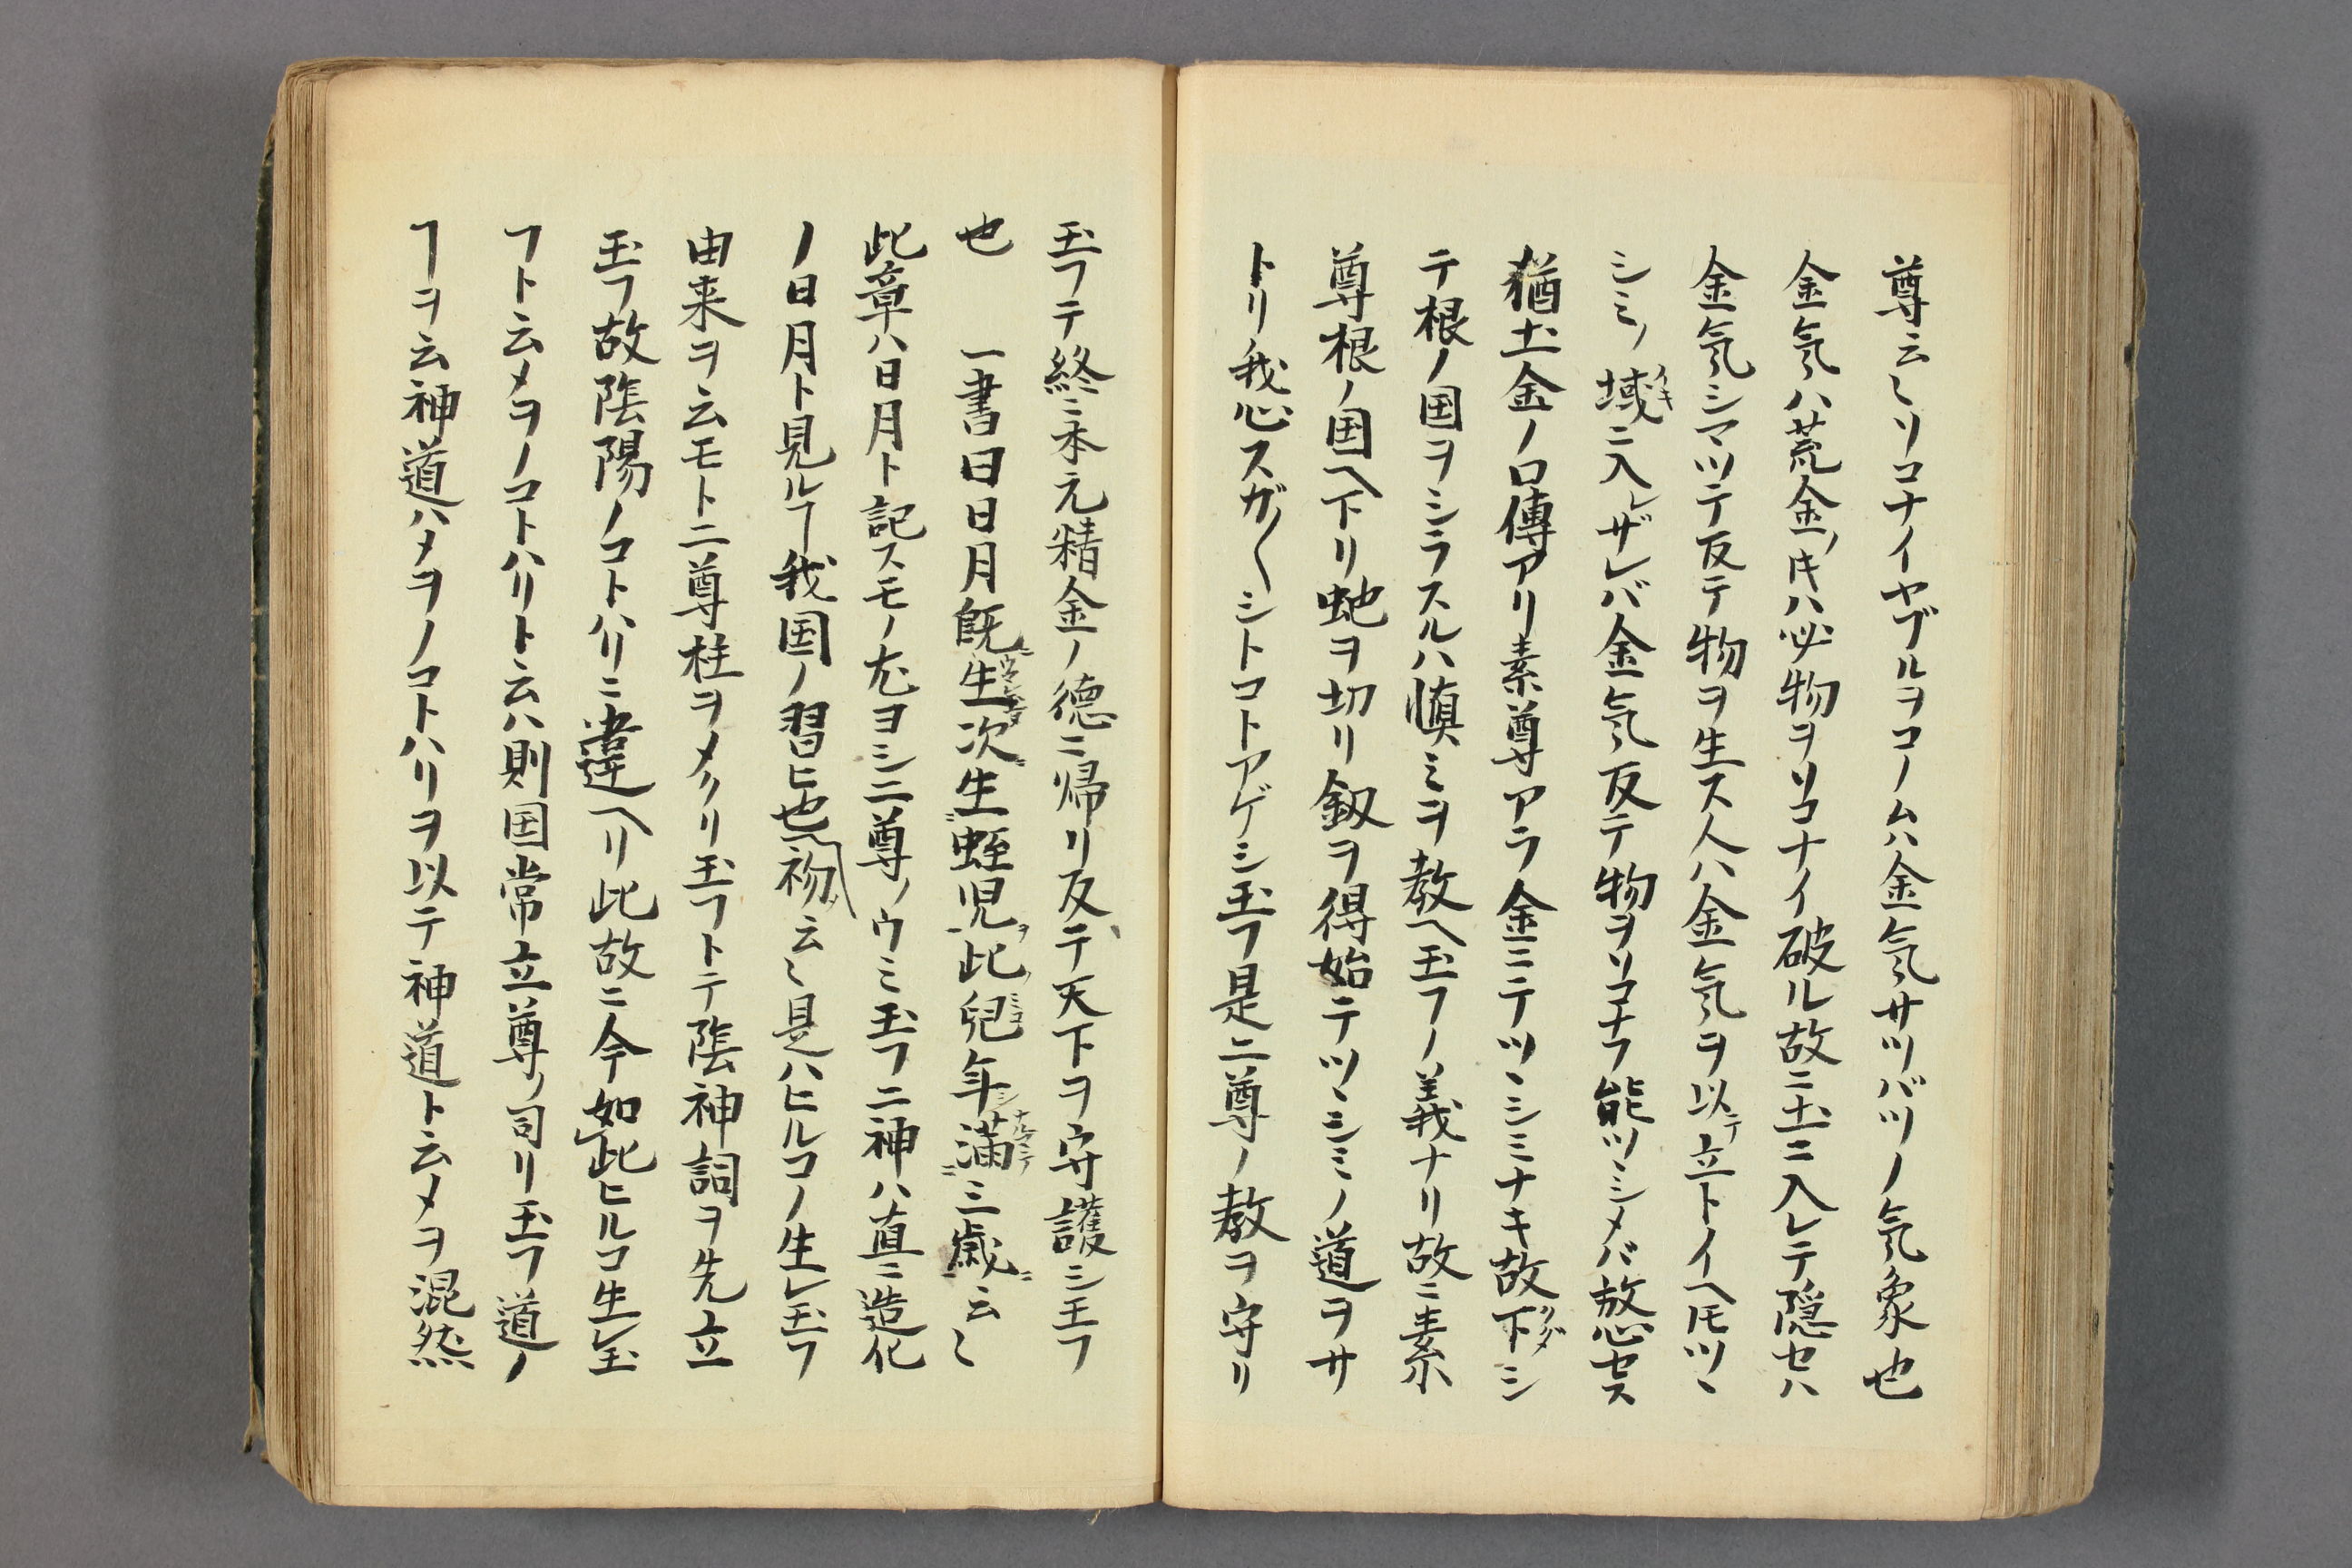 尊云〻ソコナイヤブルヲコノムハ金気サツバツノ気象也
金気ハ荒金ノ時ハ必物ヲソコナイ破ル故ニ土ニ入レテ隠セハ
金気シマツテ反テ物ヲ生ス人ハ金気ヲ以テ立トイヘ𪜈ツヽ
シミノ域ニ入レザレバ金気反テ物ヲソコナフ能ツヽシメバ放心セス
猶土金ノ口傳アリ素尊アラ金ニテツヽシミナキ故下シ
テ根ノ国ヲシラスルハ慎ミヲ教ヘ玉フノ義ナリ故ニ素
尊根ノ国ヘ下リ虵ヲ切リ釼ヲ得始テツヽシミノ道ヲサ
トリ我心スガ〳〵シトコトアゲシ玉フ是二尊ノ教ヲ守リ
玉フテ終ニ本元精金ノ徳ニ帰リ反テ天下ヲ守護シ玉フ
也　一書曰日月既生次生蛭児此兒年滿三歳云〻
此章ハ日月ト記スモノ尤ヨシ二尊ノウミ玉フ二神ハ直ニ造化
ノ日月ト見ルヿ我国ノ習ヒ也初云〻是ハヒルコノ生レ玉フ
由来ヲ云モト二尊柱ヲメクリ玉フトテ陰神詞ヲ先立
玉フ故陰陽ノコトハリニ違ヘリ此故ニ今如此ヒルコ生レ玉
フト云メヲノコトハリト云ハ則国常立尊ノ司リ玉フ道ノ
ヿヲ云神道ハメヲノコトハリヲ以テ神道ト云メヲ混然